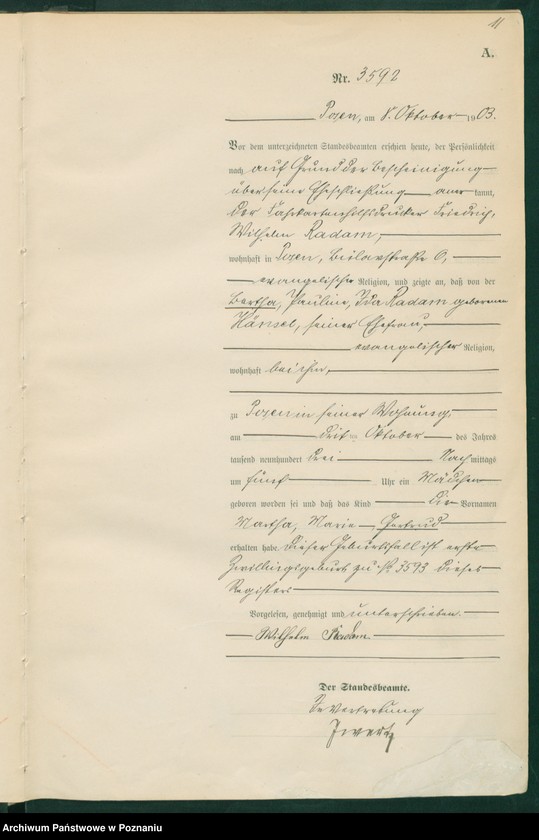 11
A.
Nr. 3592
Posen, am 8. Oktober 1903.
Vor dem unterzeichneten Standesbeamten erschien heute, der Persönlichkeit
nach auf Grund der Bescheinigung
über seine Eheschließung aner kannt,
der Fahrkartenhilfsdrucker Friedrich,
Wilhelm Radam,
wohnhaft in Posen, 6,
evangelischer Religion, und zeigte an, daß von der
Bertha, Pauline, Ida Radam geborenen
Hänsel, seiner Ehefrau,
evangelischer Religion,
wohnhaft bei ihm,
zu Posen in seiner Wohnung,
am dritten Oktober des Jahres
tausend neunhundert drei Nachmittags
um fünf Uhr ein Mädchen
geboren worden sei und daß das Kind die Vornamen
Martha, Marie, Gertrud
erhalten habe. Dieser Geburtsfall ist erste
Zwillingsgeburt zu No 3593 dieses
Registers
Vorgelesen, genehmigt und unterschrieben
Wilhelm Radam
Der Standesbeamte.
In Vertretung
Archiwum Państwowe w Poznaniu